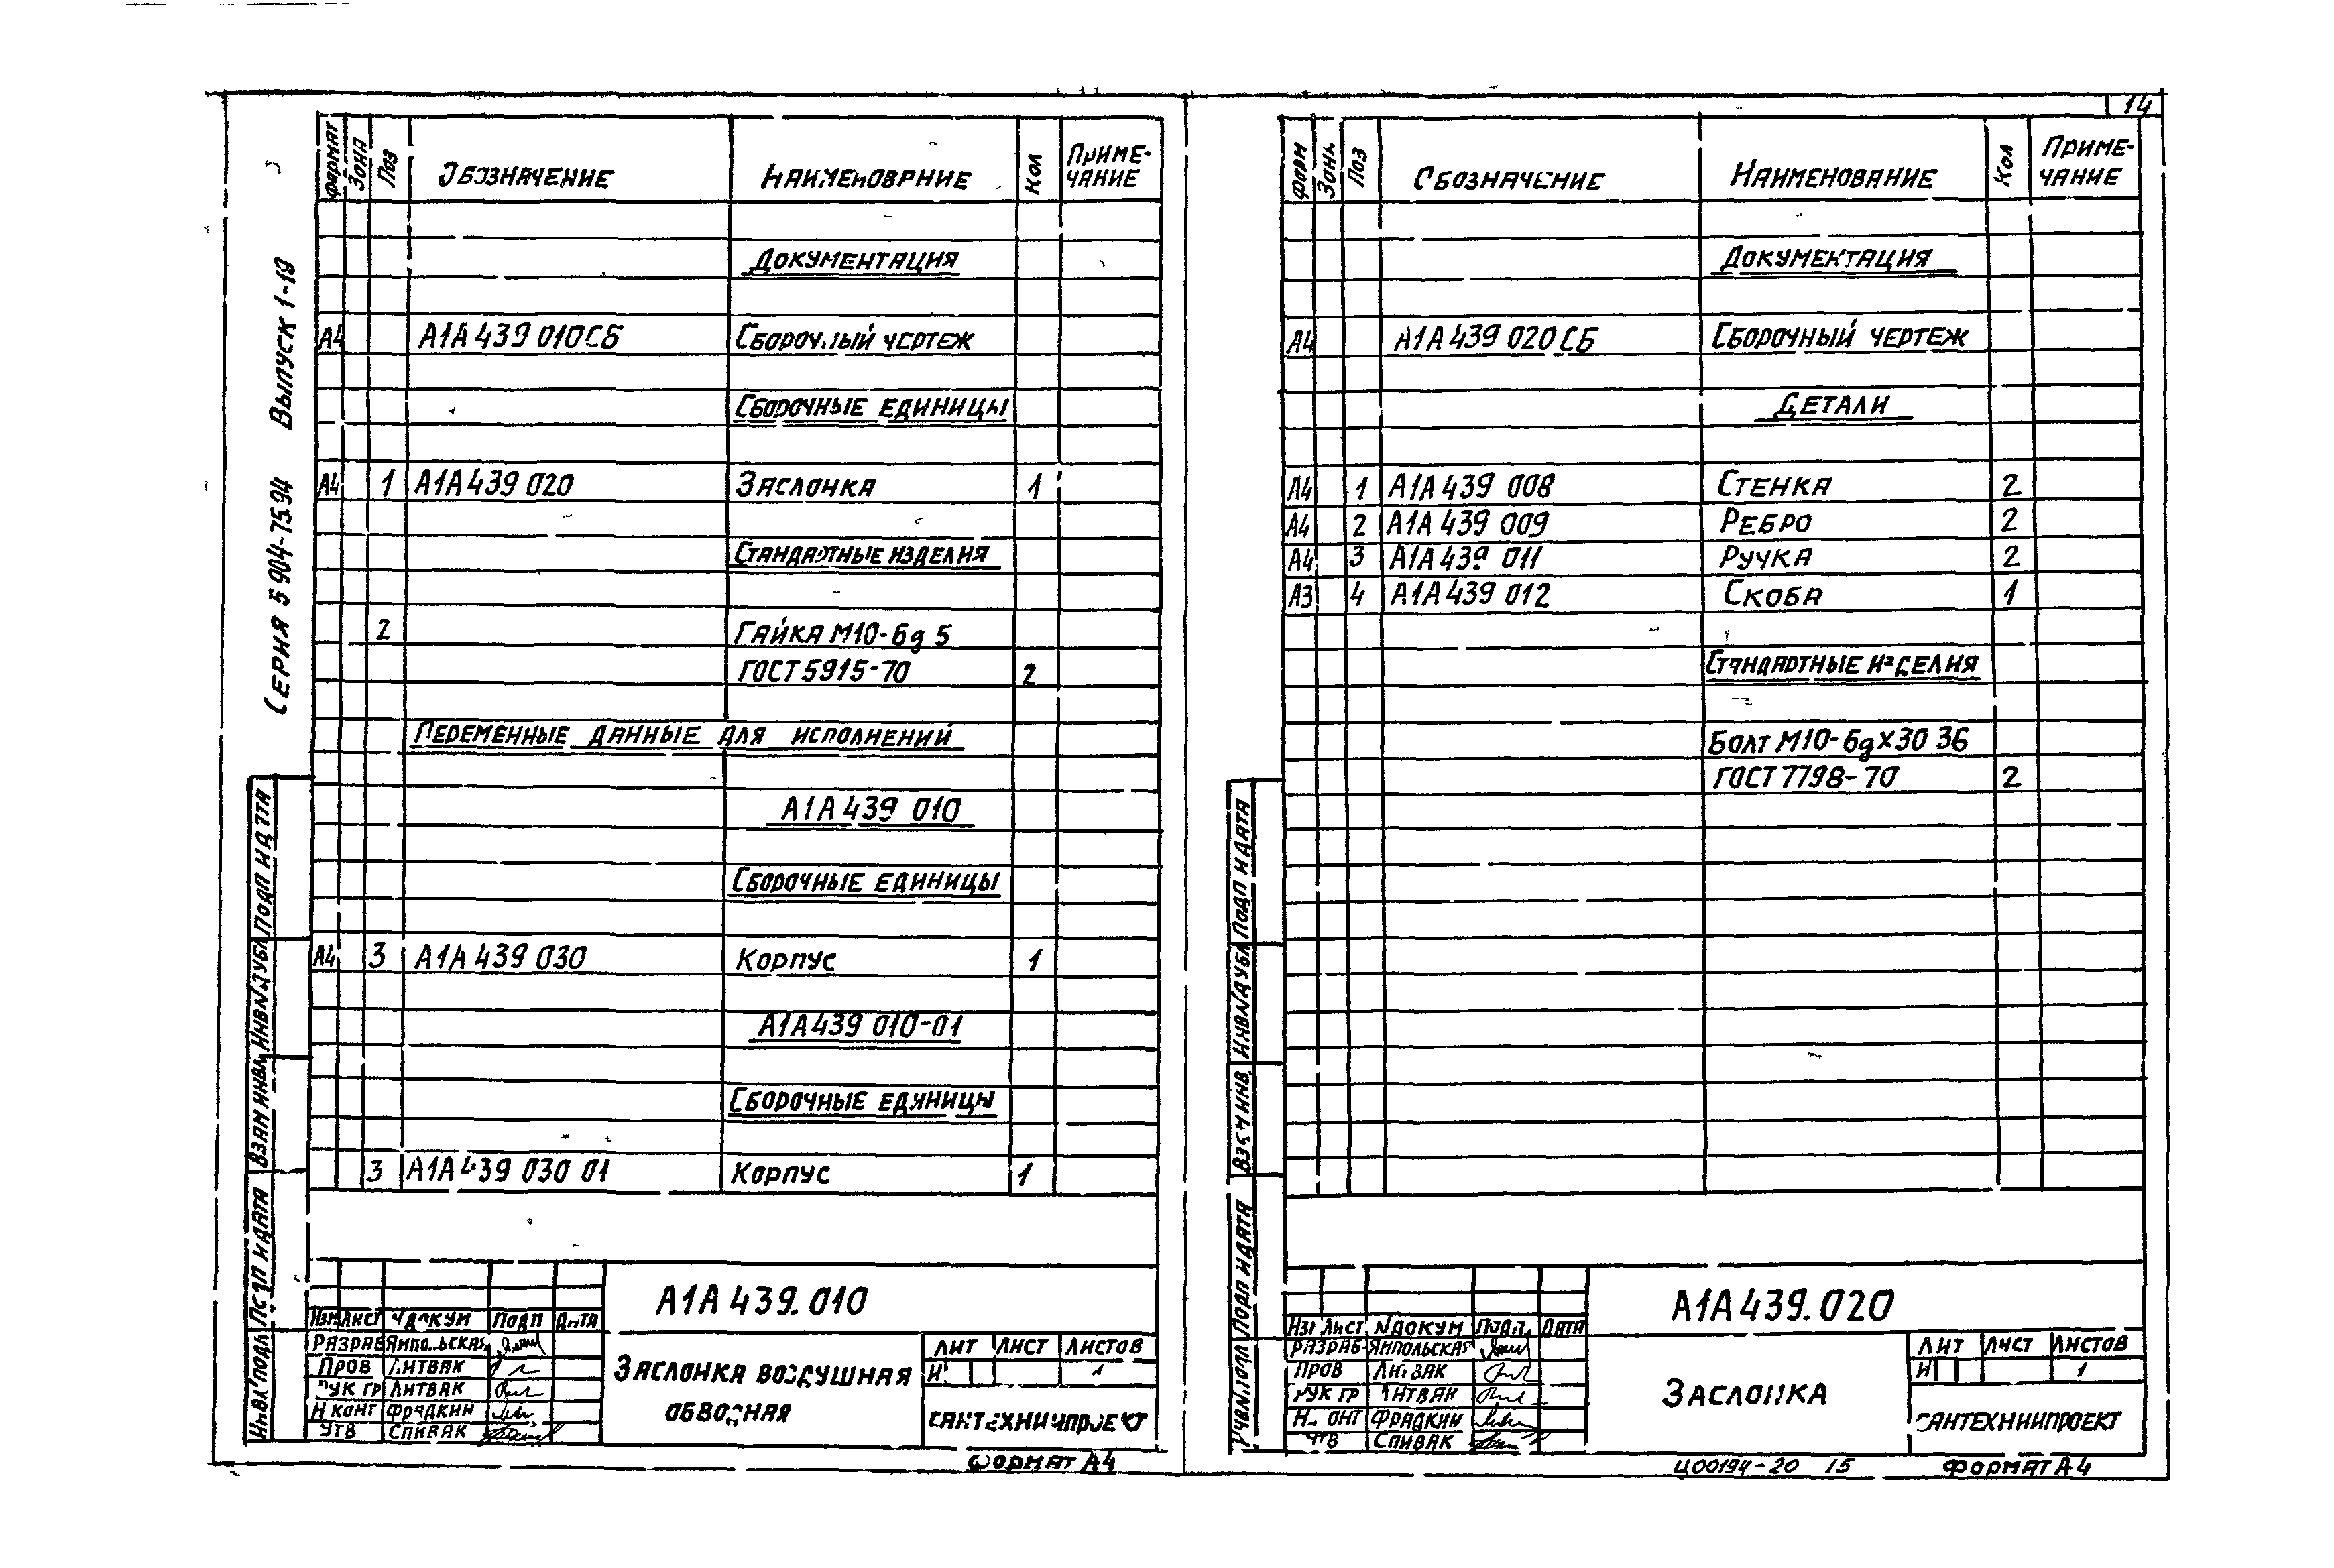 14
Серия 5 904-75.94 Выпуск 1-19
Формат Зона Поз Обозначение Наименование Кол Приме-
чание
Документация
А4 А1А 439 010 СБ Сборочный чертеж
Сборочные единицы
А4 1 А1А 439 020 Заслонка 1
Стандартные изделия
2 Гайка М10-6g 5
ГОСТ 5915-70 2
Переменные данные для исполнений
А1А 439 010
Сборочные единицы
А4 3 А1А 439 030 Корпус 1
А1А 439 010-01
Сборочные единицы
3 А1А 439 030 01 Корпус 1
Подп и дата
Инв № дубл
Взам инв №
Подп и дата
Инв № подл
Изм Лист № докум Подп Дата
Разраб Ямпольская
Пров Литвак
Рук гр Литвак
Н конт Фрадкин
Утв Спивак
А1А 439.010
Заслонка воздушная
обводная
Лит Лист Листов
И 1
Сантехниипроект
Формат А4
Форм Зона Поз Обозначение Наименование Кол Приме-
чание
Документация
А4 А1А 439 020 СБ Сборочный чертеж
Детали
А4 1 А1А 439 008 Стенка 2
А4 2 А1А 439 009 Ребро 2
А4 3 А1А 439 011 Ручка 2
А3 4 А1А 439 012 Скоба 1
Стандартные изделия
Болт М10-6gх30 36
ГОСТ 7798-70 2
Подп и дата
Инв № дубл
Взам инв.
Подп и дата
Инв № подл
Изм Лист № докум Подп. Дата
Разраб Ямпольская
Пров Литвак
Рук гр Литвак
Н. конт Фрадкин
Утв Спивак
А1А 439.020
Заслонка
Лит Лист Листов
И 1
Сантехниипроект
Ц00194-20 15 Формат А4